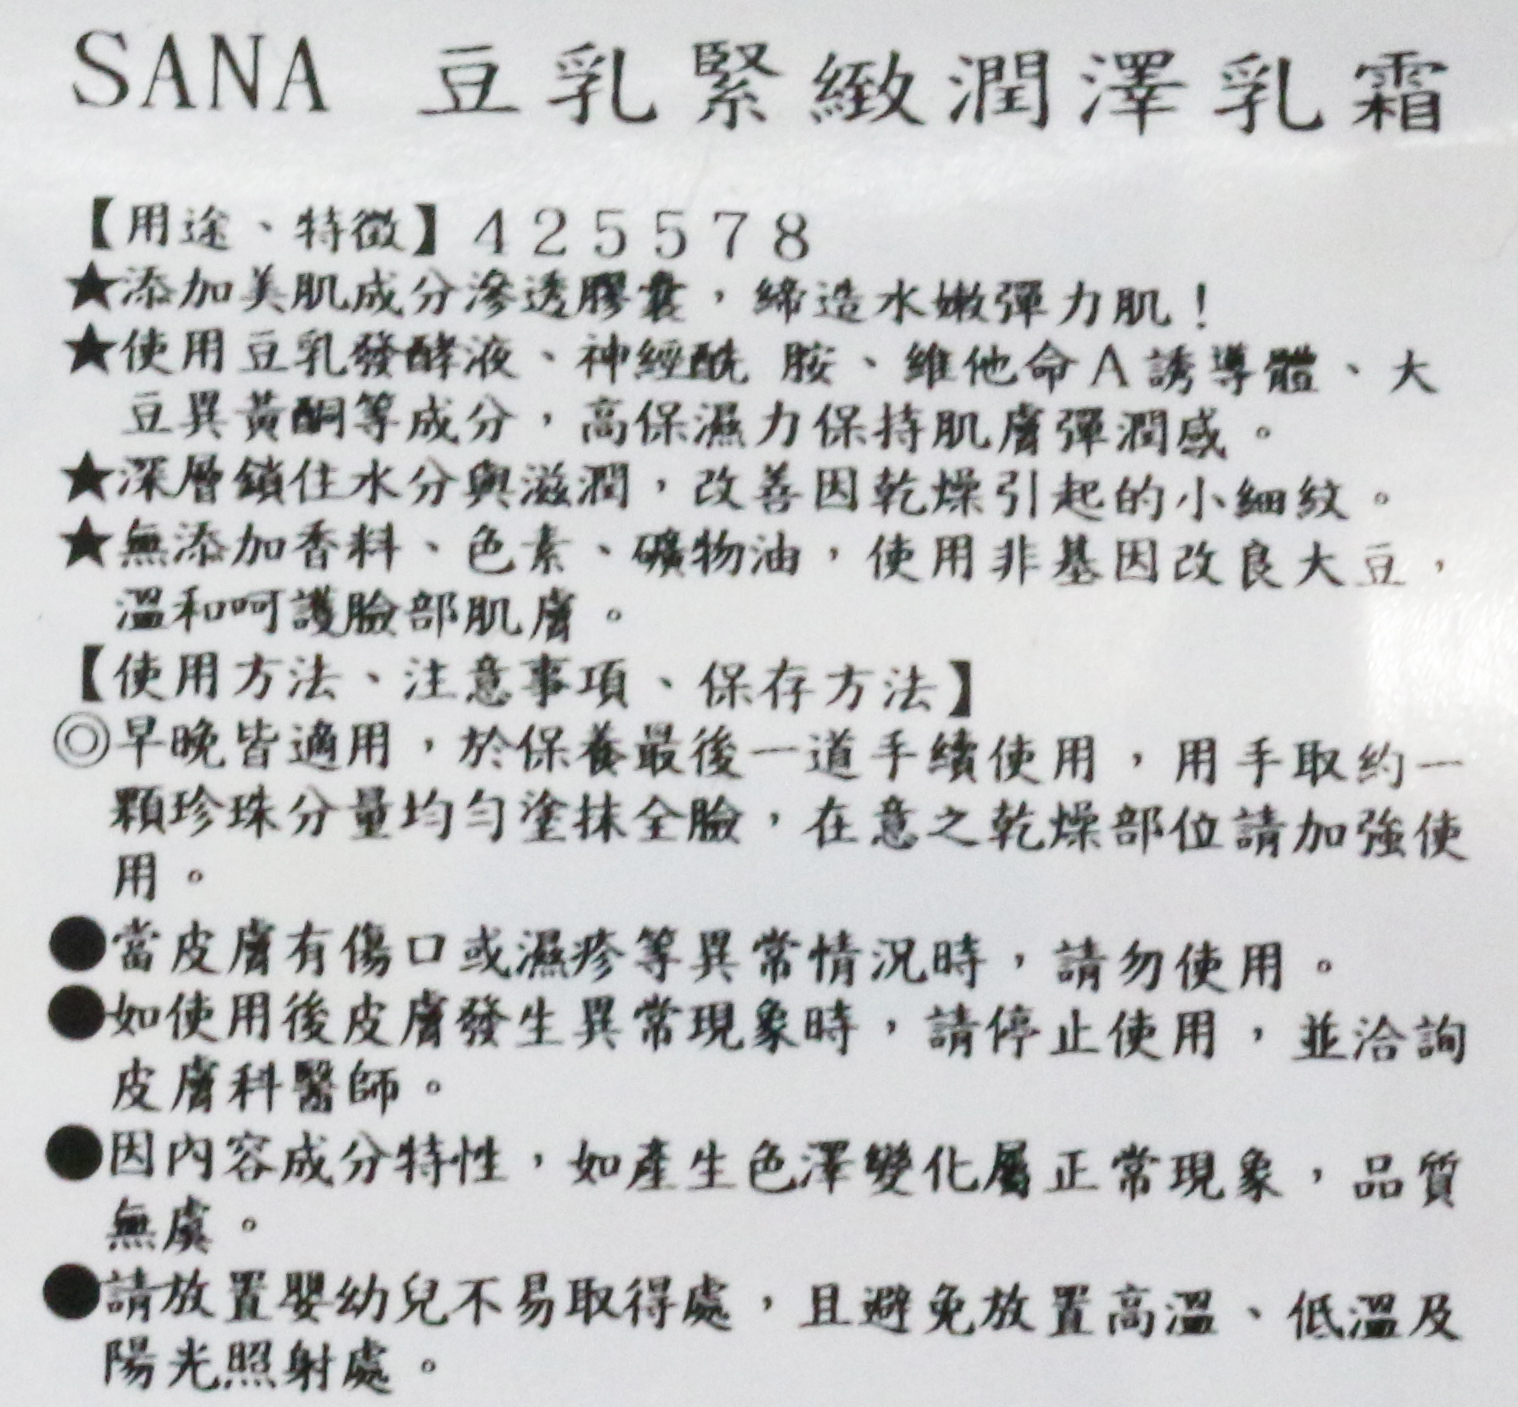 SANA 豆乳緊緻潤澤乳霜
【用途、特徵】425578
★添加美肌成分滲透膠囊，締造水嫩彈力肌！
★使用豆乳發酵液、神經醯 胺、維他命A誘導體、大
豆異黃酮等成分，高保濕力保持肌膚彈潤感。
★深層鎖住水分與滋潤，改善因乾燥引起的小細紋。
★無添加香料、色素、礦物油，使用非基因改良大豆，
溫和呵護臉部肌膚。
【使用方法、注意事項、保存方法】
◎早晚皆適用，於保養最後一道手續使用，用手取約一
顆珍珠分量均勻塗抹全臉，在意之乾燥部位請加強使
用。
●當皮膚有傷口或濕疹等異常情況時，請勿使用。
●如使用後皮膚發生異常現象時，請停止使用，並洽詢
皮膚科醫師。
●因內容成分特性，如產生色澤變化屬正常現象，品質
無虞。
●請放置嬰幼兒不易取得處，且避免放置高溫、低溫及
陽光照射處。